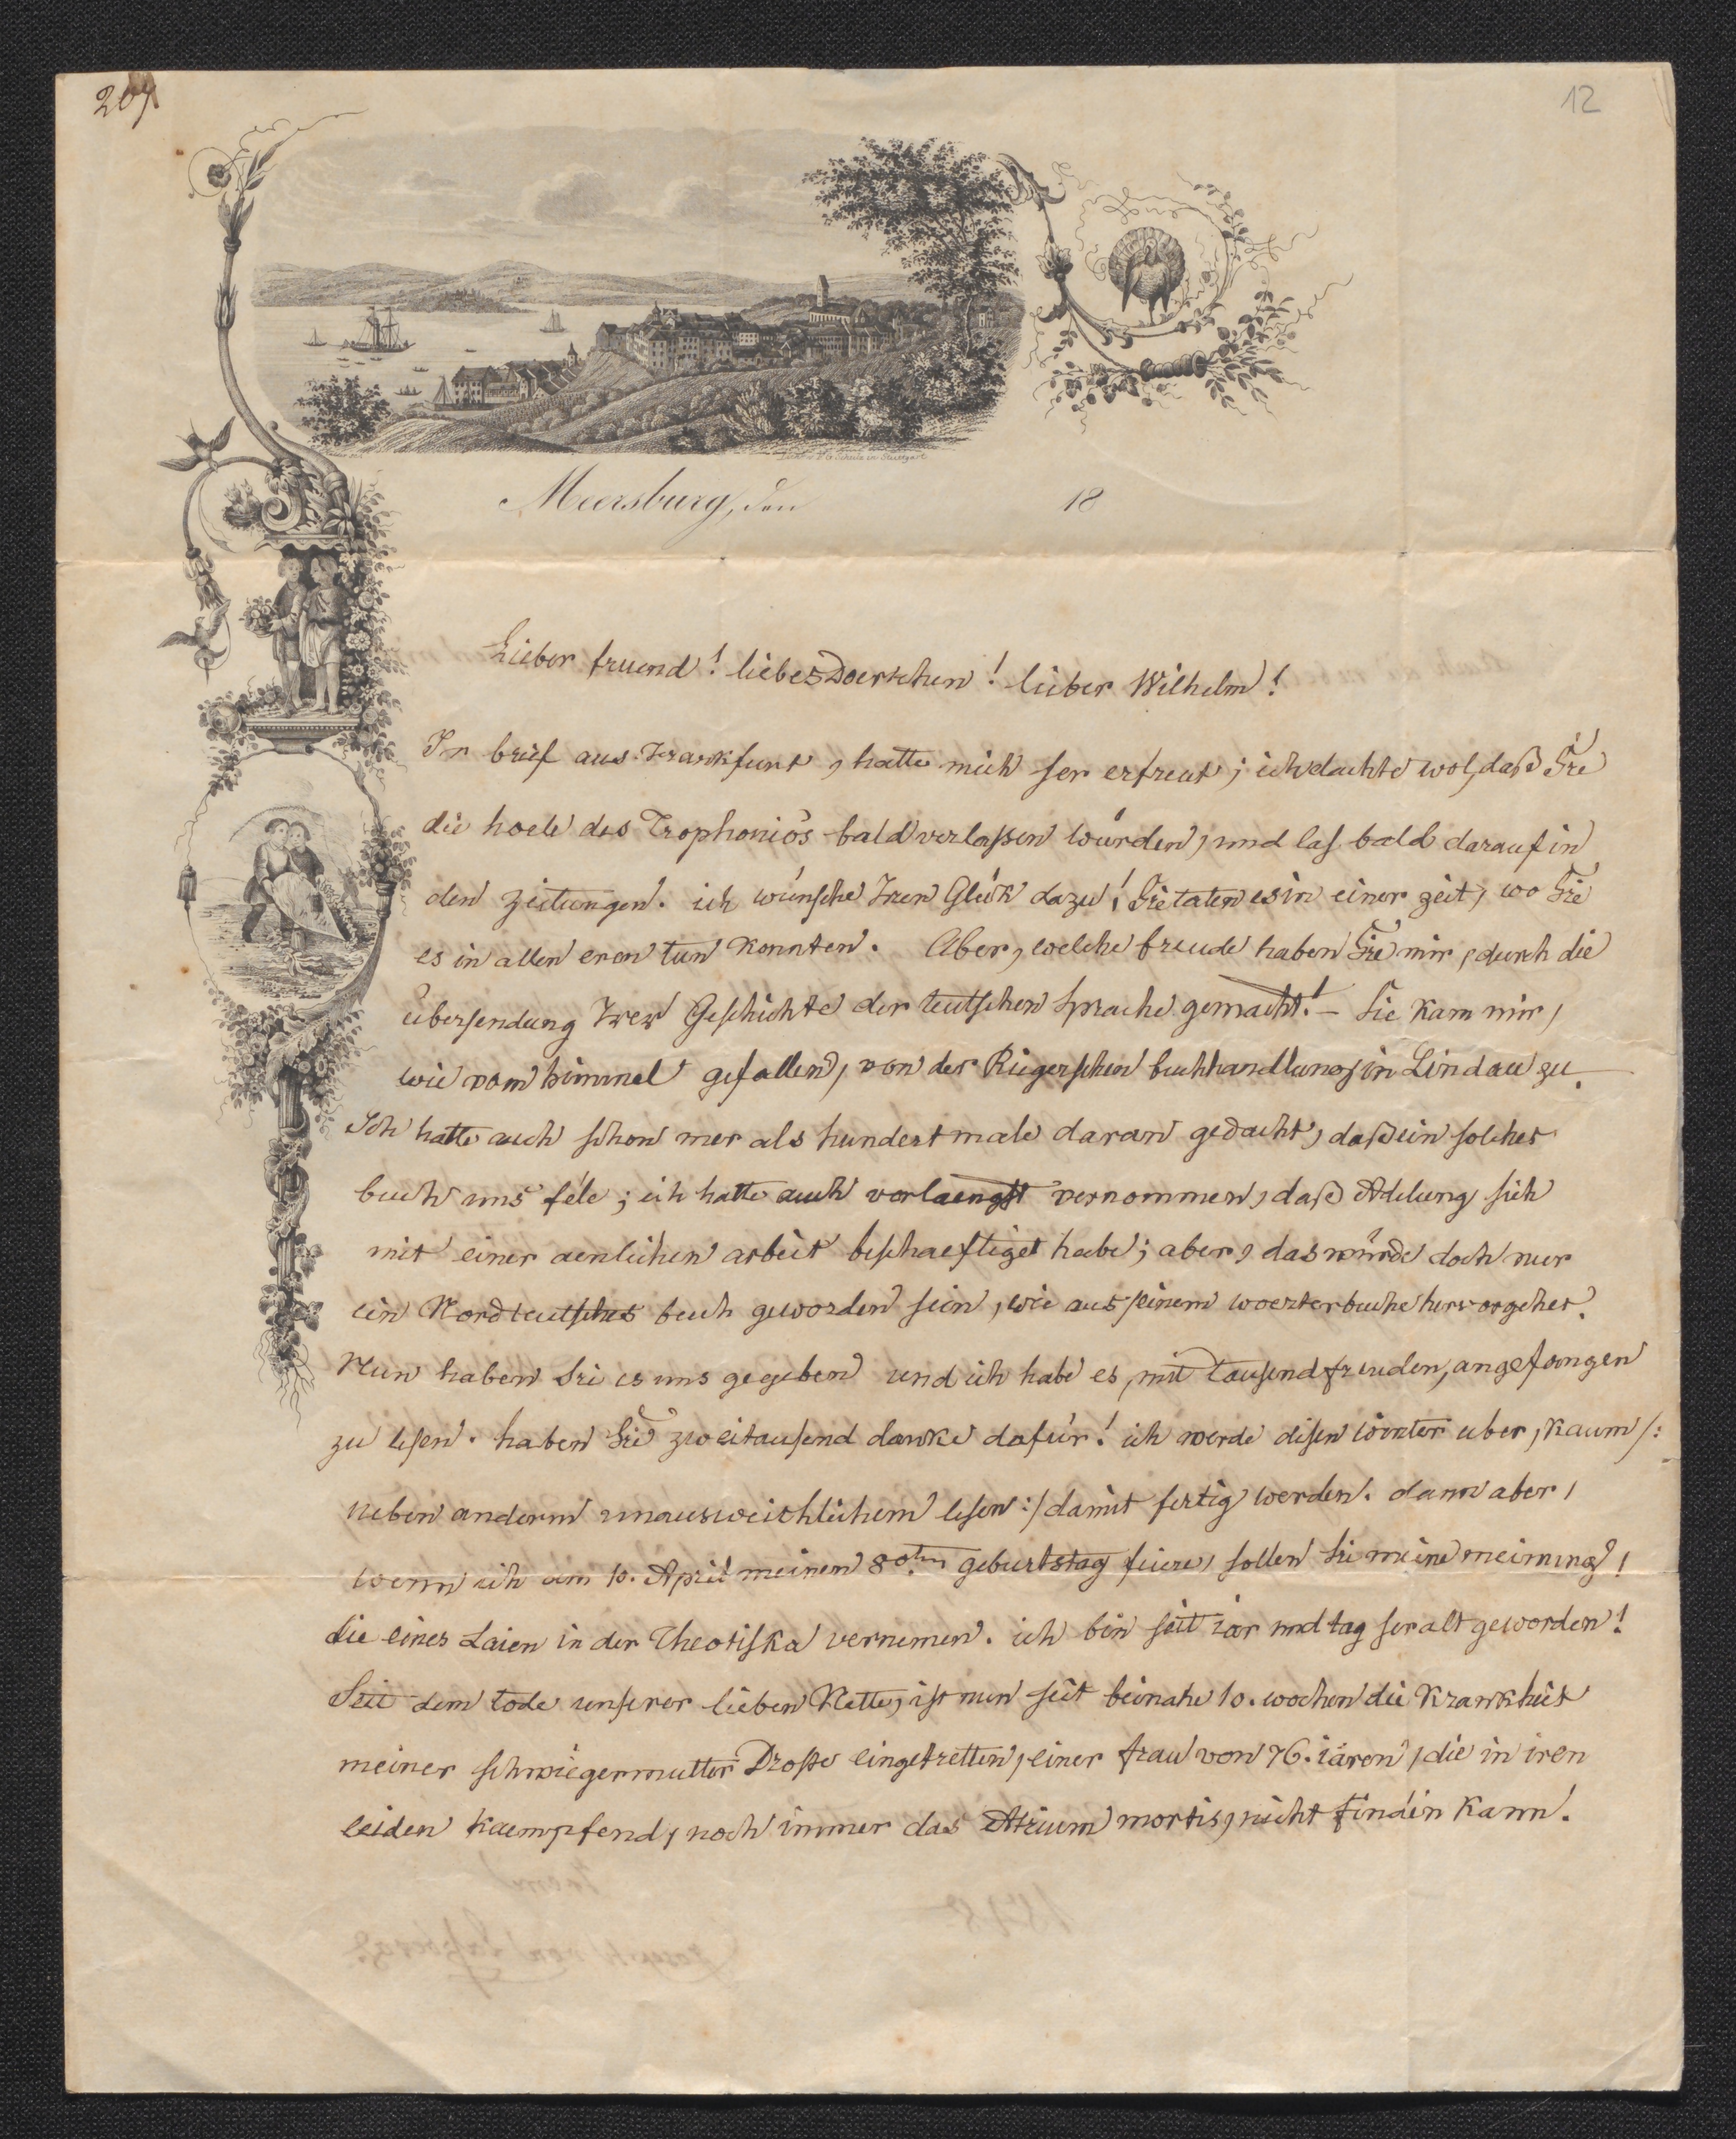 209
12
Meersburg, den 18
Lieber freund! liebes Doerthen! lieber Wilhelm!
Ir brief aus Frankfurt, hatte mich ser erfreut; ich dachte wol, daß Sie
die hoele des Trophonios bald verlaßen würden, und las bald darauf in
den zeitungen. ich wünsche Iren Glük dazu! Sie taten es in einer zeit, wo Sie
es in allen eren tun konnten. Aber, welche freude haben Sie mir, durch die
übersendung Irer Geschichte der teutschen Sprache gemacht! – Sie kam mir,
wie vom himmel gefallen, von der Riegerschen buchhandlung in Lindau zu.
Ich hatte auch schon mer als hundert male daran gedacht, daß ein solches
buch uns féle; ich hatte auch vorlaengst vernommen, daß Adelung sich
mit einer aenlichen arbeit beschaeftiget habe; aber, das würde doch nur
ein Nordteutsches buch geworden sein, wie aus seinem woerterbuche hervorgehet.
Nun haben Sie es uns gegeben und ich habe es, mit tausend freuden, angefangen
zu lesen. haben Sie zweitausend danke dafür! ich werde disen winter uber, kaum /:
neben anderm unausweichlichem lesen :/ damit fertig werden. dann aber,
wenn ich am 10. April meinen 80ten geburtstag feiere, sollen Sie meine meinung,
die eines Laien in der Theotiska vernemen. ich bin seit iar und tag ser alt geworden!
Seit dem tode unserer lieben Nette, ist nun seit beinahe 10. wochen die Krankheit
meiner schwiegermutter Droste eingetretten, einer frau von 76. iaren, die in iren
leiden kaempfend, noch immer das Atrium mortis, nicht finden kann!